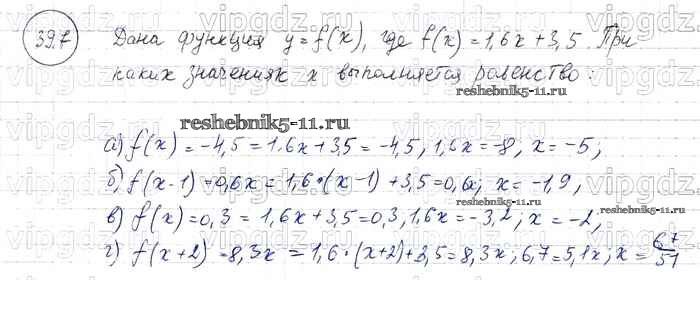 39.7 Дана функция y = f(x), где f(x) = 1,6x + 3,5. При
каких значениях x выполняется равенство:
reshebnik5-11.ru
reshebnik5-11.ru
а) f(x) = -4,5 = 1,6x + 3,5 = -4,5, 1,6x = -8; x = -5;
б) f(x-1) = 0,6x = 1,6·(x-1) + 3,5 = 0,6x; x = -1,9,
reshebnik5-11.ru
в) f(x) = 0,3 = 1,6x + 3,5 = 0,3, 1,6x = -3,2; x = -2,
г) f(x+2) = 8,3x = 1,6·(x+2) + 3,5 = 8,3x; 6,7 = 5,1x; x = 67/51
reshebnik5-11.ru